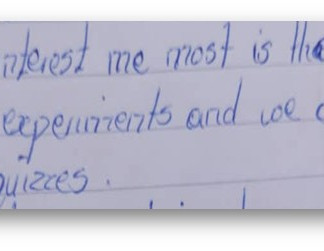 nterest me most is the
experiments and we
quizzes.